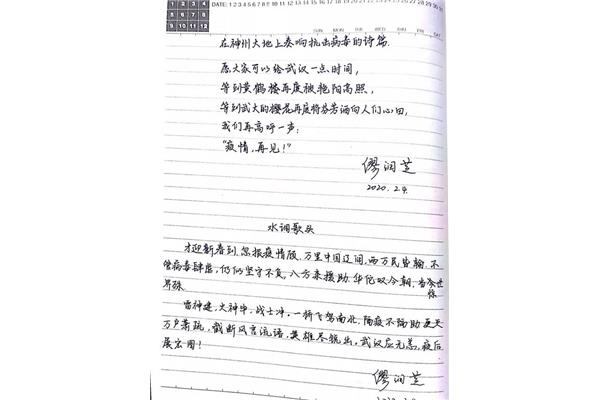 1 2 3 4
5 6 7 8
9 10 11 12
DATE: 1 2 3 4 5 6 7 8 9 10 11 12 13 14 15 16 17 18 19 20 21 22 23 24 25 26 27 28 29 30 31
在神州大地上奏响抗击病毒的诗篇.
愿大家可以给武汉一点时间,
等到黄鹤楼再度被艳阳高照,
等到武大的樱花再度将芬芳洒向人们心田,
我们再高呼一声:
"疫情,再见!"
缪润芝
2020.2.4.
水调歌头
才迎新春到,忽报疫情版.万里中国辽阔,西万民皆翰.不
管病毒肆虐,仍仍坚守不负,八方来援助.华佗叹今朝,
雷神建,火神毕,战士冲.一桥飞驾南北,隔疫不隔助.更天
万户萧疏,截断风言流语,英雄尽锐出.武汉应无恙,疫后
展宏图!
缪润芝